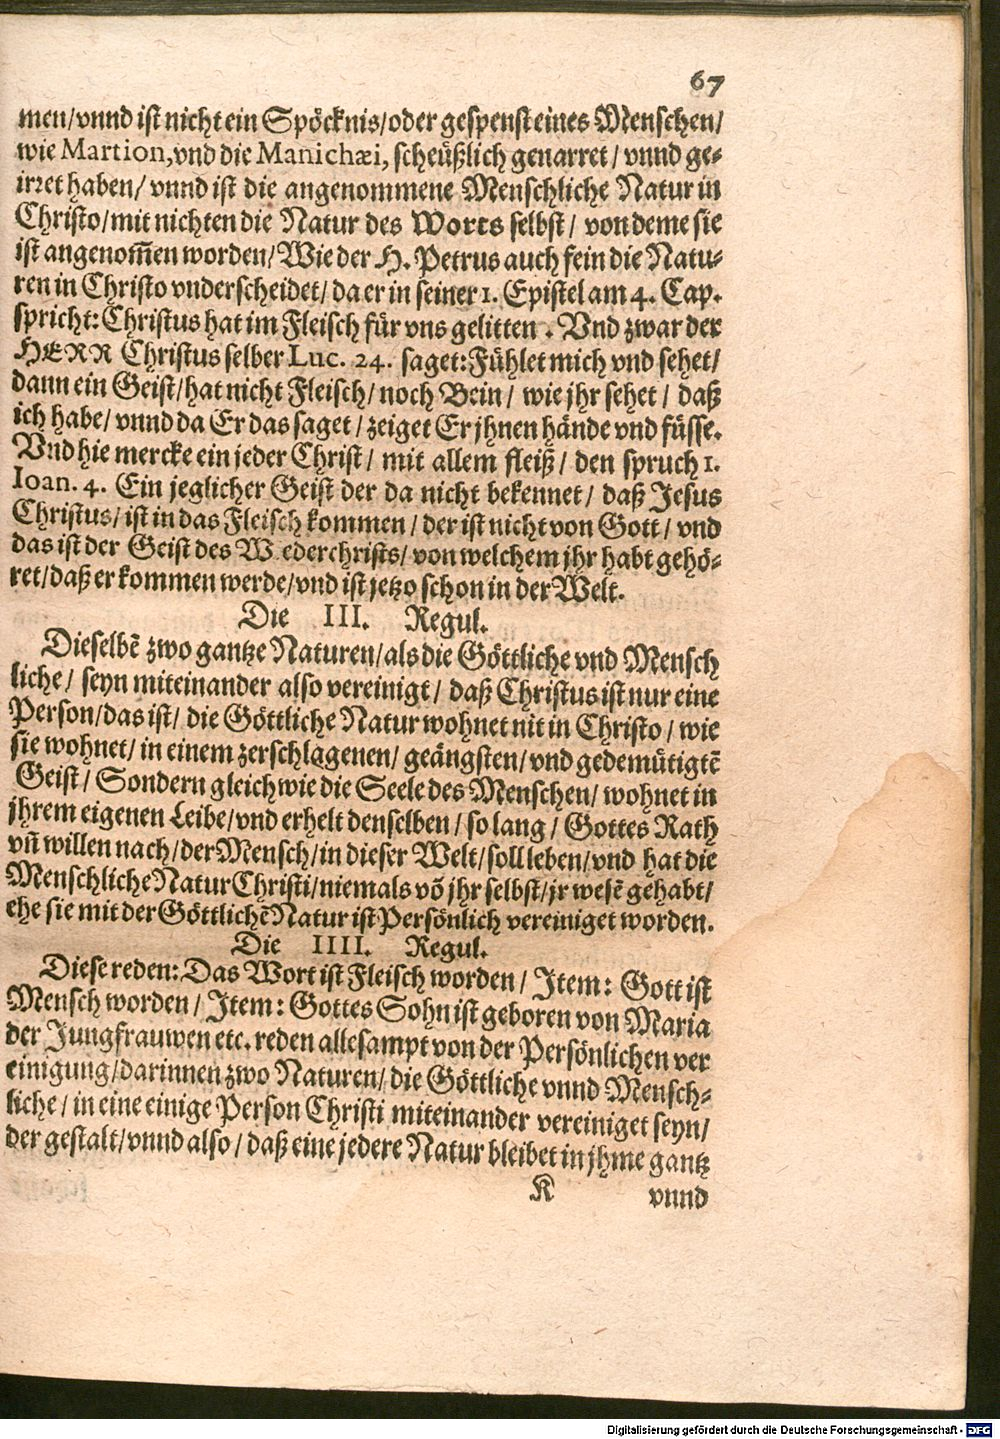 67
men/vnnd ist nicht ein Spöcknis/oder gespenst eines Menschen/
wie Martion,vnd die Manichæi, scheüßlich genarret/ vnnd ge-
irret haben/ vnnd ist die angenommene Menschliche Natur in
Christo/mit nichten die Natur des Worts selbst/ von deme sie
ist angenom̃en worden/Wie der H. Petrus auch fein die Natu-
ren in Christo vnderscheidet/ da er in seiner 1. Epistel am 4. Cap.
spricht: Christus hat im Fleisch für vns gelitten. Vnd zwar der
HERR Christus selber Luc. 24. saget: Fühlet mich vnd sehet/
dann ein Geist/hat nicht Fleisch/noch Bein/ wie jhr sehet/ daß
ich habe/ vnnd da Er das saget/ zeiget Er jhnen hände vnd füsse.
Vnd hie mercke ein jeder Christ/ mit allem fleiß/ den spruch 1.
Ioan. 4. Ein jeglicher Geist der da nicht bekennet/ daß Jesus
Christus/ ist in das Fleisch kommen/ der ist nicht von Gott/ vnd
das ist der Geist des W ederchrists/ von welchem jhr habt gehö-
ret/daß er kommen werde/vnd ist jetzo schon in der Welt.
Die III. Regul.
Dieselbẽ zwo gantze Naturen/als die Göttliche vnd Mensch
liche/ seyn miteinander also vereinigt/ daß Christus ist nur eine
Person/das ist/ die Göttliche Natur wohnet nit in Christo/ wie
sie wohnet/ in einem zerschlagenen/ geängsten/ vnd gedemütigtẽ
Geist/ Sondern gleich wie die Seele des Menschen/ wohnet in
jhrem eigenen Leibe/vnd erhelt denselben/ so lang/ Gottes Rath
vñ willen nach/der Mensch/in dieser Welt/soll leben/vnd hat die
Menschliche Natur Christi/niemals võ jhr selbst/jr wesẽ gehabt/
ehe sie mit der Göttlichẽ Natur ist Persönlich vereiniget worden.
Die IIII. Regul.
Diese reden: Das Wort ist Fleisch worden/ Item: Gott ist
Mensch worden/ Item: Gottes Sohn ist geboren von Maria
der Jungfrauwen etc. reden allesampt von der Persönlichen ver
einigung/darinnen zwo Naturen/ die Göttliche vnnd Mensch-
liche/ in eine einige Person Christi miteinander vereiniget seyn/
der gestalt/vnnd also/ daß eine jedere Natur bleibet in jhme gantz
K vnnd
Digitalisierung gefördert durch die Deutsche Forschungsgemeinschaft - DFG